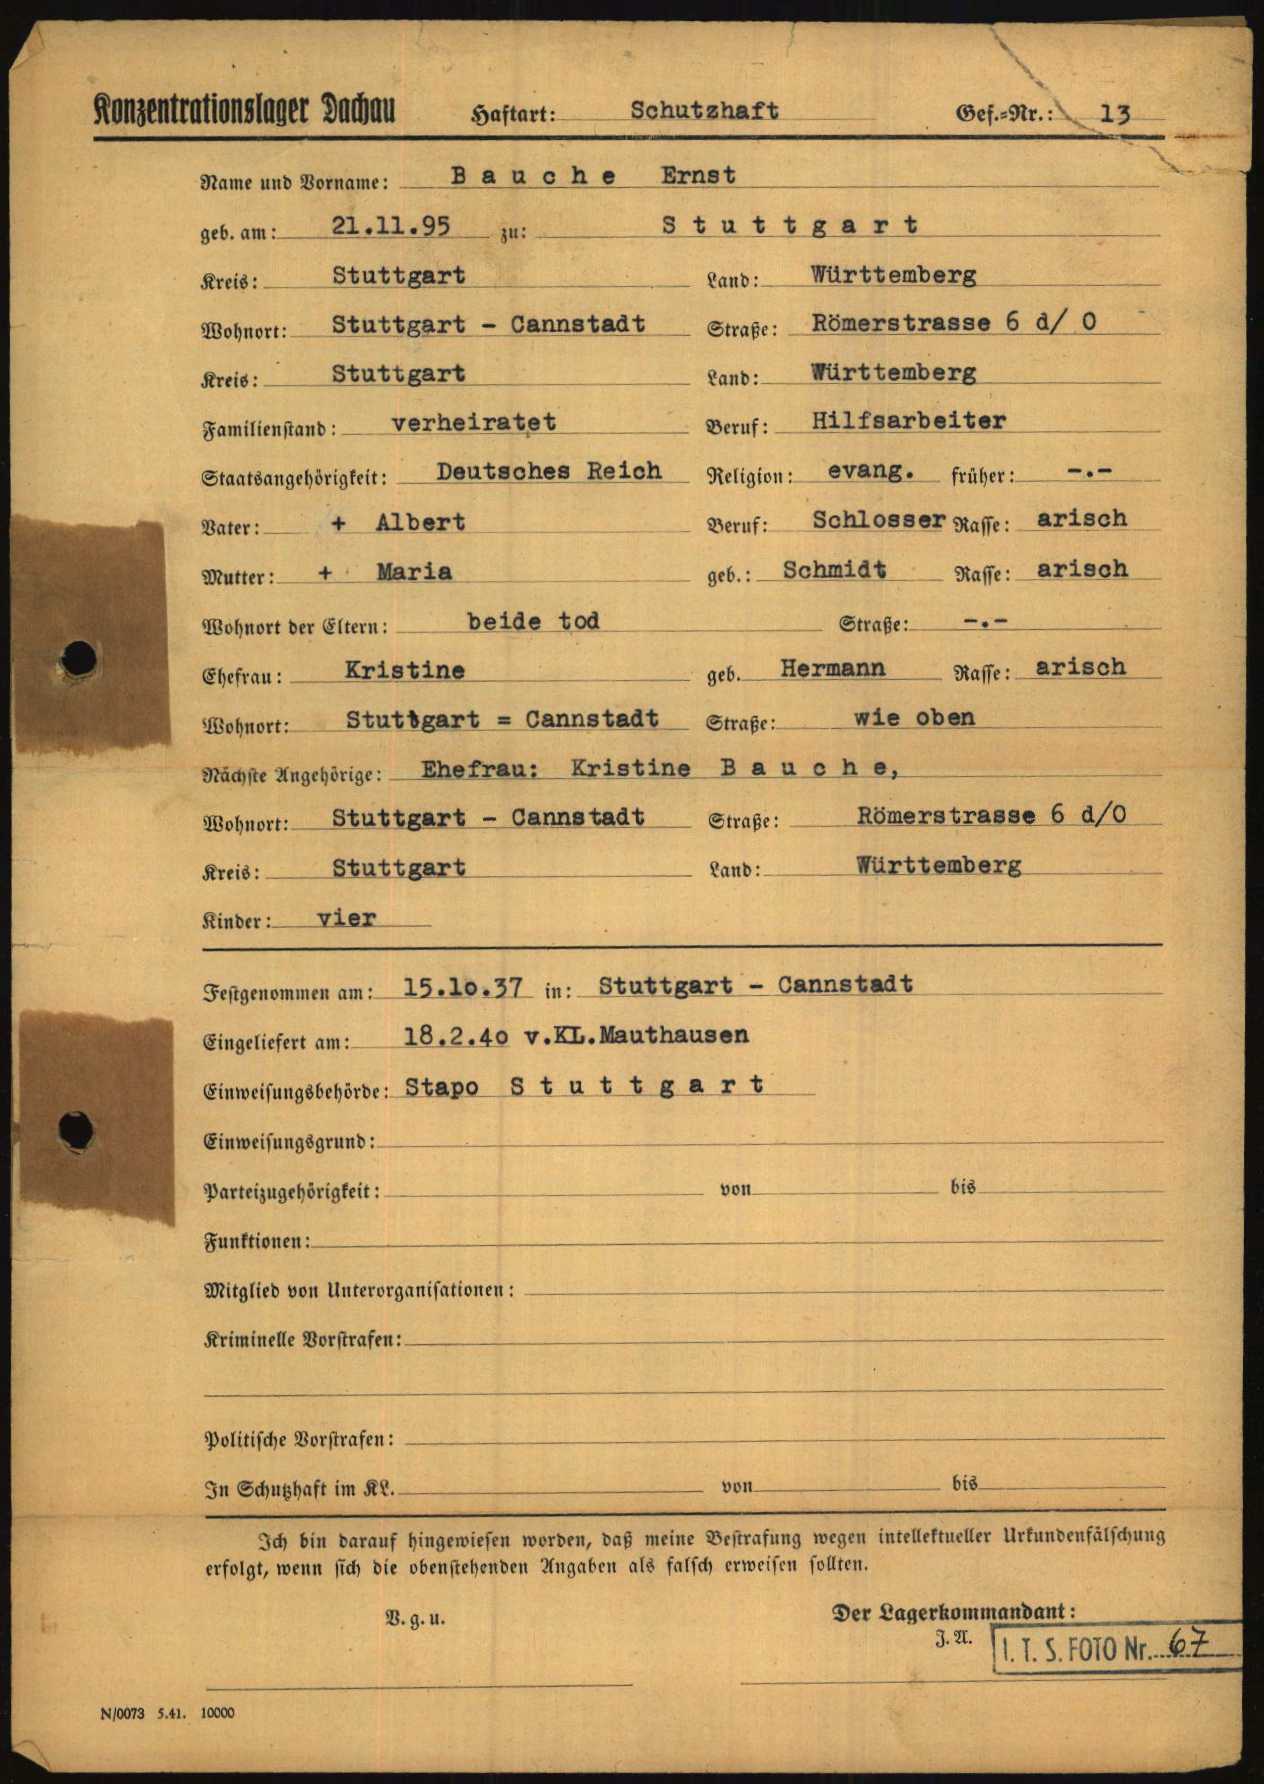 Konzentrationslager Dachau Haftart: Schutzhaft Gef.=Nr.: 13
Name und Vorname: B a u c h e Ernst
geb. am: 21.11.95 zu: S t u t t g a r t
Kreis: Stuttgart Land: Württemberg
Wohnort: Stuttgart - Cannstadt Straße: Römerstrasse 6 d/ O
Kreis: Stuttgart Land: Württemberg
Familienstand: verheiratet Beruf: Hilfsarbeiter
Staatsangehörigkeit: Deutsches Reich Religion: evang. früher: -.-
Vater: + Albert Beruf: Schlosser Rasse: arisch
Mutter: + Maria geb.: Schmidt Rasse: arisch
Wohnort der Eltern: beide tod Straße: -.-
Ehefrau: Kristine geb. Hermann Rasse: arisch
Wohnort: Stuttgart = Cannstadt Straße: wie oben
Nächste Angehörige: Ehefrau: Kristine B a u c h e,
Wohnort: Stuttgart - Cannstadt Straße: Römerstrasse 6 d/O
Kreis: Stuttgart Land: Württemberg
Kinder: vier
Festgenommen am: 15.10.37 in: Stuttgart - Cannstadt
Eingeliefert am: 18.2.40 v.KL.Mauthausen
Einweisungsbehörde: Stapo S t u t t g a r t
Einweisungsgrund:
Parteizugehörigkeit: von bis
Funktionen:
Mitglied von Unterorganisationen:
Kriminelle Vorstrafen:
Politische Vorstrafen:
In Schutzhaft im KL. von bis
Ich bin darauf hingewiesen worden, daß meine Bestrafung wegen intellektueller Urkundenfälschung
erfolgt, wenn sich die obenstehenden Angaben als falsch erweisen sollten.
V. g. u. Der Lagerkommandant:
J. A.
I. T. S. FOTO Nr. 67
N/0073 5.41. 10000